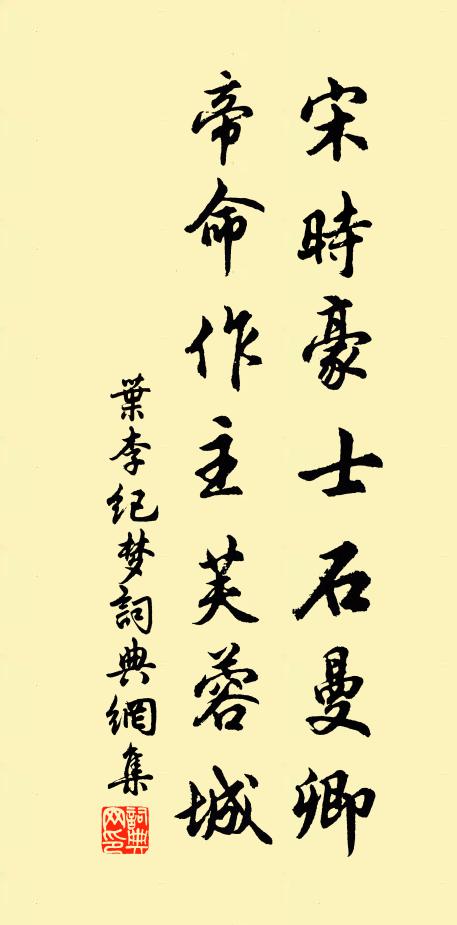 宋時豪士石曼卿
帝命作主芙蓉城
葉李纪梦詞典網集
詞典网印